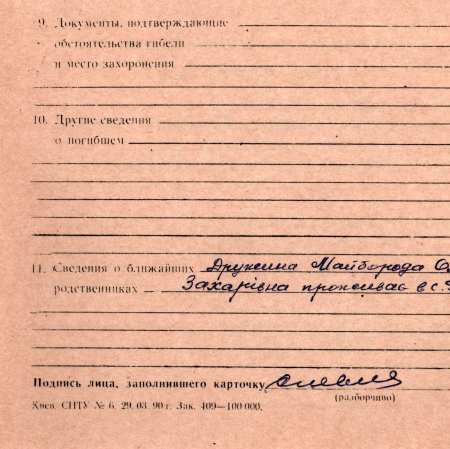 9. Документы, подтверждающие
обстоятельства гибели
и место захоронения
10. Другие сведения
о погибшем
11. Сведения о ближайших Дружина Майборода
родственниках Захарівна проживає в с.
Подпись лица, заполнившего карточку
(разборчиво)
Киев. СПТУ № 6. 29. 03. 90 г. Зак. 409—100 000.